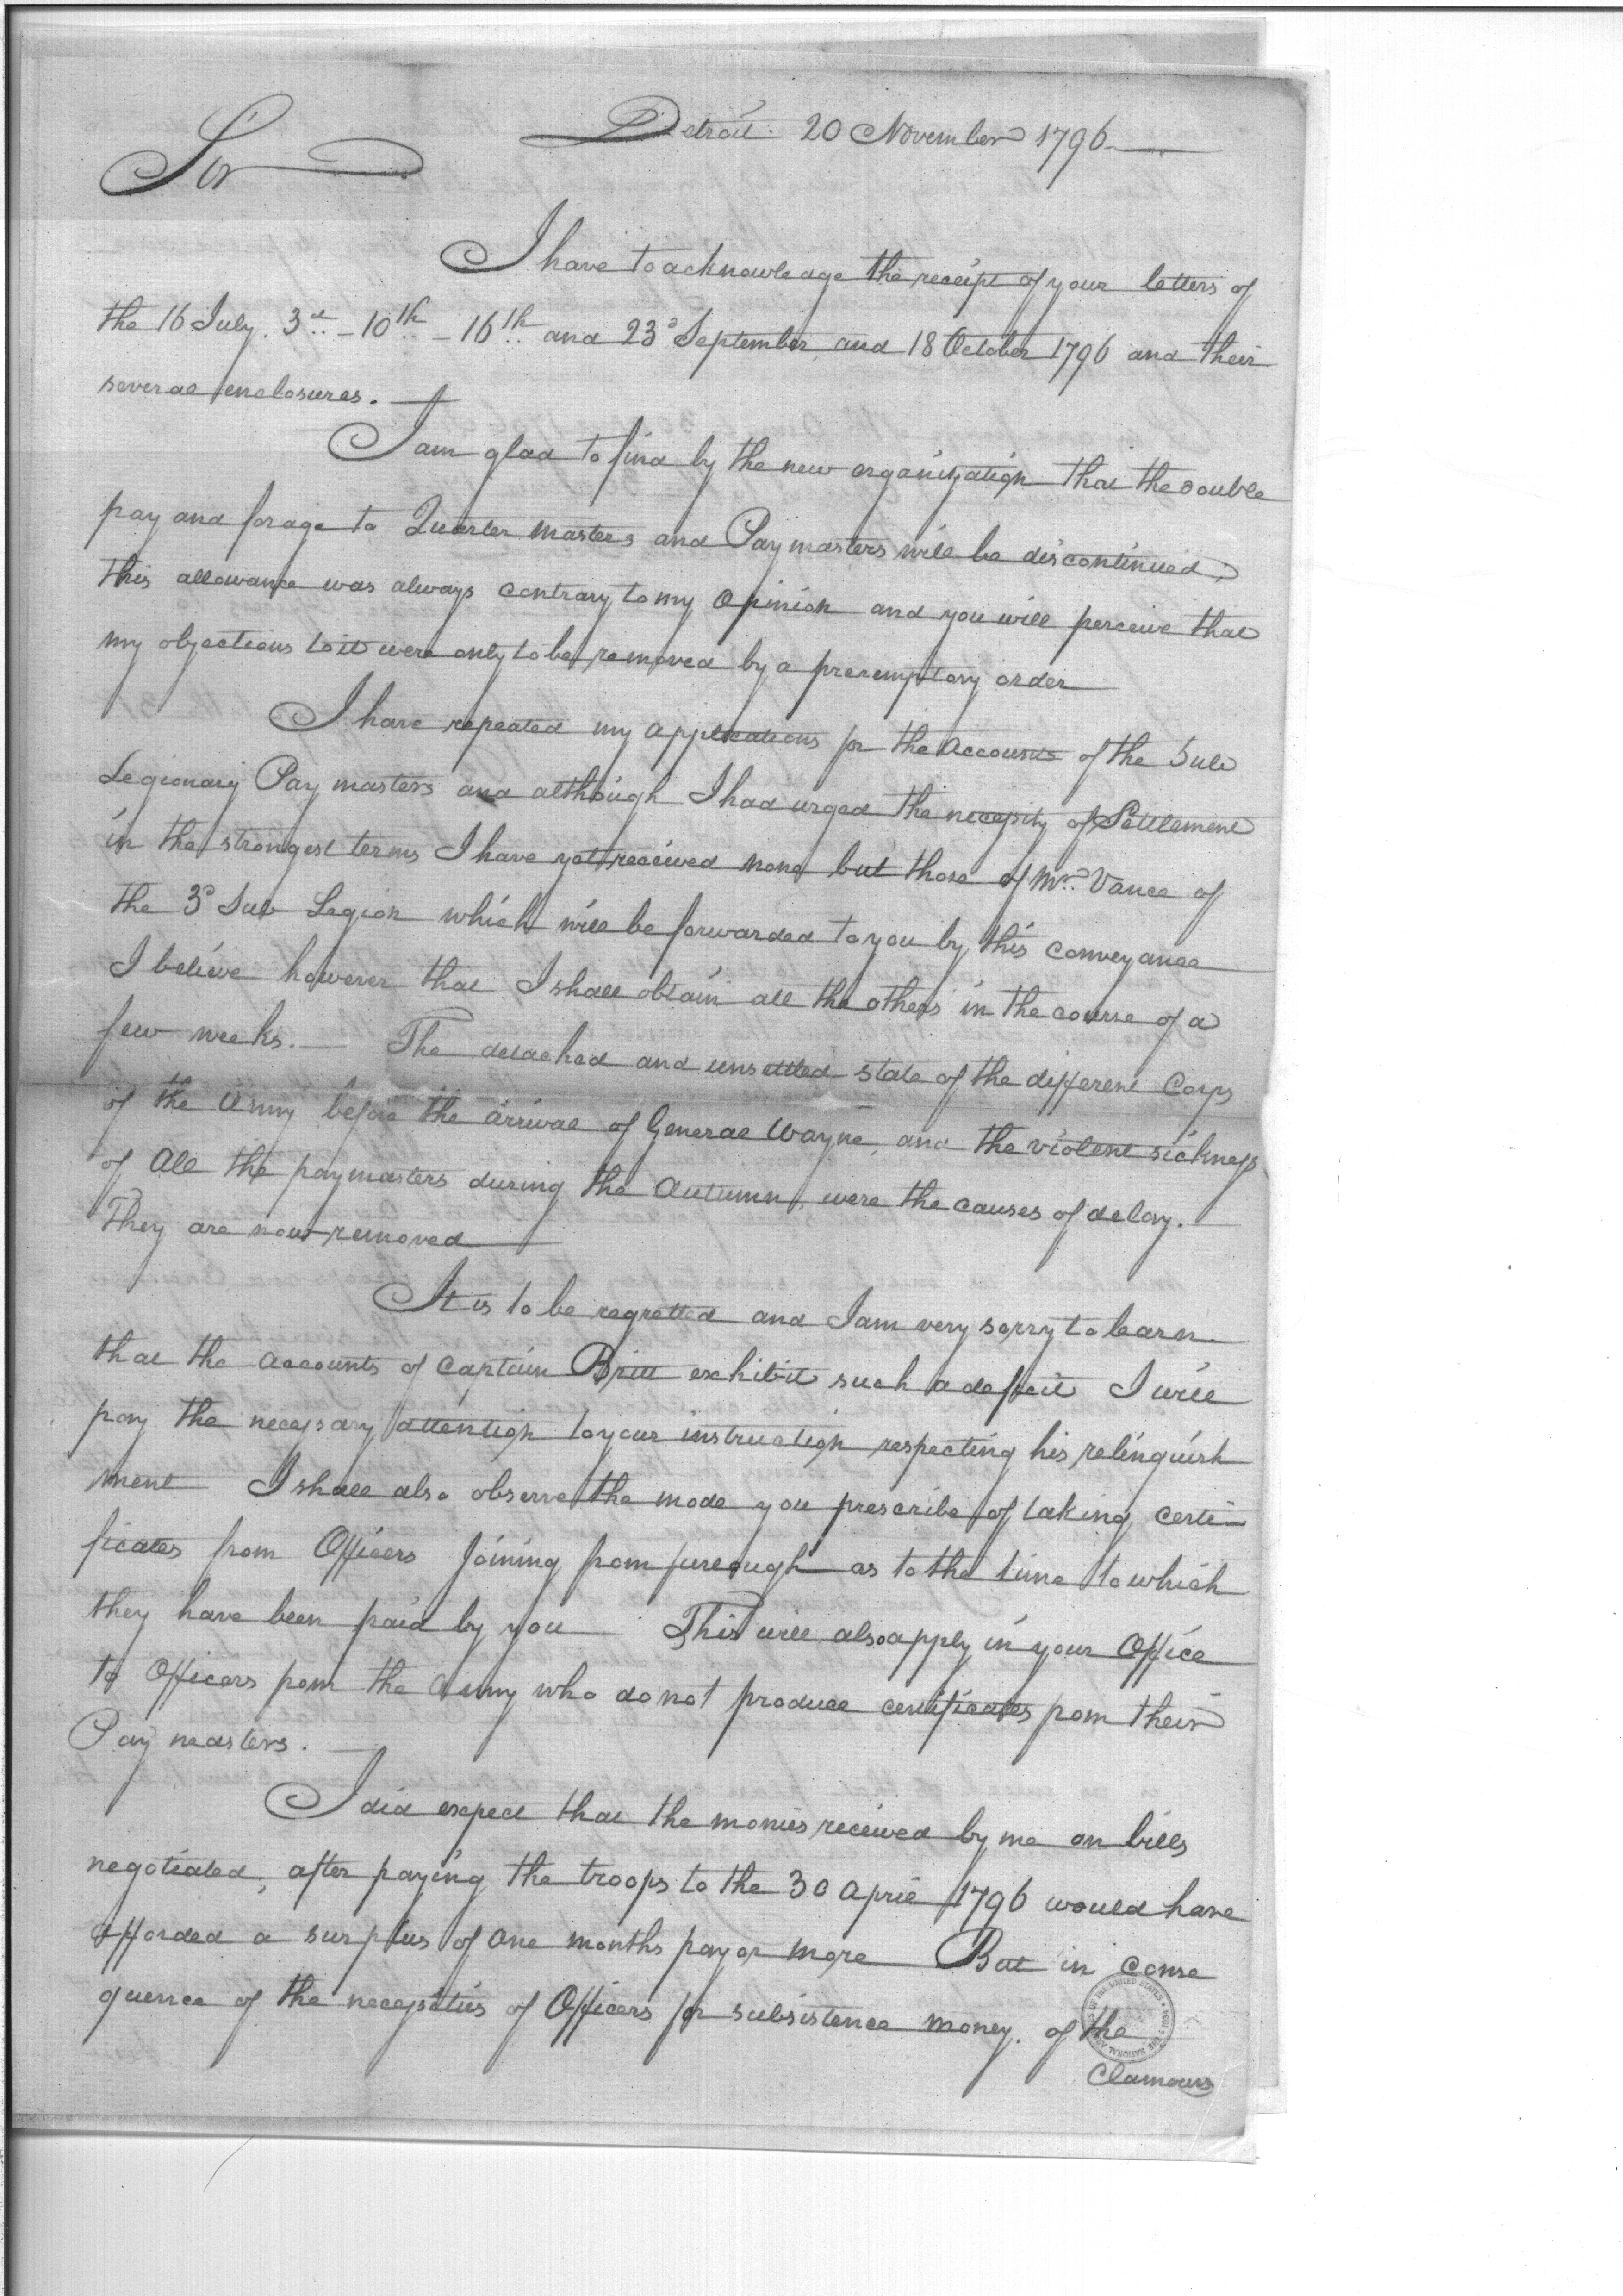 Detroit 20 November 1796
Sir
I have to acknowledge the receipt of your letters of
the 16 July. 3rd - 10th - 16th and 23d September, and 18 October 1796 and their
several enclosures.
I am glad to find by the new organization that the double
pay and forage to Quarter Masters and Paymasters will be discontinued,
this allowance was always contrary to my opinion and you will perceive that
my objections to it were only to be removed by a peremptory order
I have repeated my applications for the Accounts of the Sub
Legionary Paymasters and although I had urged the necessity of Settlement
in the strongest terms I have yet received none but those of Mr. Vance of
the 3d Sub Legion which will be forwarded to you by this conveyance
I believe however that I shall obtain all the others in the course of a
few weeks. — The detached and unsettled state of the different Corps
of the Army before the arrival of General Wayne, and the violent sickness
of all the paymasters during the Autumn, were the causes of delay. —
They are now removed
It is to be regretted and I am very sorry to learn
that the accounts of Captain Britt exhibit such a deficit I will
pay the necessary attention to your instruction respecting his relinquish
ment I shall also observe the mode you prescribe of taking certi-
ficates from Officers joining from furlough as to the time to which
they have been paid by you This will also apply in your Office
to Officers from the Army who do not produce certificates from their
Pay masters. —
I did expect that the monies received by me on bills
negotiated, after paying the troops to the 30 April 1796 would have
afforded a surplus of one months pay or more But in conse
quence of the necessities of Officers for subsistence money. of the
Clamours